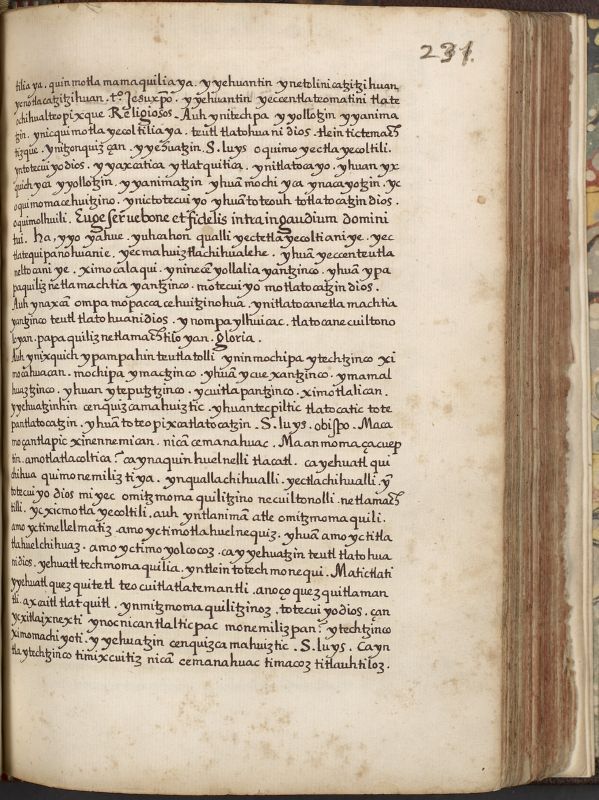 231.
tilia ya. quin motla mamaquilia ya. y yehuantin ynetolinicatzitzihuan
ycnotlacatzitzihuan. to. Jesuxpo. y yehuantin yeccentlateomatini tlate
ochihualteopixque Religiosos. Auh ynitechpa yyollotzin yyanima
tzin. ynicquimotlayecoltiliaya. teutl tlatohuani dios. tlein tictemach
tizque. ynitzonquizçan. y yehuatzin. S. luys oquimoyectlayecoltili.
yn totecuiyo dios. yyaxcatica ytlatquitica. ynitlatocayo. yhuan yx
quich yca yyollotzin. yyanimatzin yhuã mochi yca ynacayotzin. yc
oquimomacehuitzino. ynictotecuiyo yhuã toteouh totlatocatzin dios.
oquimolhuili. Euge serue bone et fidelis intra in gaudium domini
tui. Ha, yyo yahue. yuhcahon qualli yectetlayecoltiani ye. yec
tlatequipanohuanie. yecmahuiztlachihualehe. yhuã yeccenteutla
neltocani ye. ximocalaqui. yninecẽ yollalia yantzinco. yhuã ypa
paquiliznetlamachtia yantzinco. motecuiyo motlatocatzin dios.
Auh ynaxcã ompa mopaccacehuitzinohua. ynitlatocanetlamachtia
yantzinco teutl tlatohuani dios. ynompa ylhuicac. tlatocanecuiltono
loyan. papaquiliznetlamachtiloyan. gloria.
Auh ynixquich ypampa hin teutlatolli yninmochipa ytechtzinco xi
mocahuacan. mochipa ymactzinco. yhuã ycuexantzinco. ymamal
huaztzinco. yhuan yteputztzinco. ycuitlapantzinco. ximotlalican.
y yehuatzin hin cenquizcamahuiztic. yhuan tecpiltic tlatocatic tote
pantlatocatzin. yhuã toteopixcatlatocatzin. S. luys. obispo. Maca
moçantlapic xinennemican. nicã cemanahuac. Maanmomaçacuep
tin. amotlatlacoltica? ca ynaquin huelnelli tlacatl. ca yehuatl qui
chihua quimonemiliztiya. ynquallachihualli. yectlachihualli. yn
totecuiyo dios miyec omitzmomaquilitzino necuiltonolli. netlamach
tilli. yc xicmotlayecoltili. auh yntlanimã atle omitzmomaquili.
amo yctimellelmatiz. amo yctimotlahuelnequiz. yhuã amo yctitla
tlahuelchihuaz. amo yctimoyolcocoz. ca yyehuatzin teutl tlatohua
nidios. yehuatl techmomaquilia. yntlein totech monequi. Matictlati
yyehuatl quezquitetl teocuitlatlatemantli. anoço quezquitlaman
tli. axcaitl tlatquitl. ynmitzmomaquilitzinoz. totecuiyo dios. çan
ycxitlaixnexti ynocnican tlalticpac monemilizpan. ytechtzinco
ximomachiyoti. yyehuatzin cenquizcamahuiztic. S. luys. Ca yn
tla ytechtzinco timixcuitiz nicã cemanahuac timacoz titlauhtiloz.